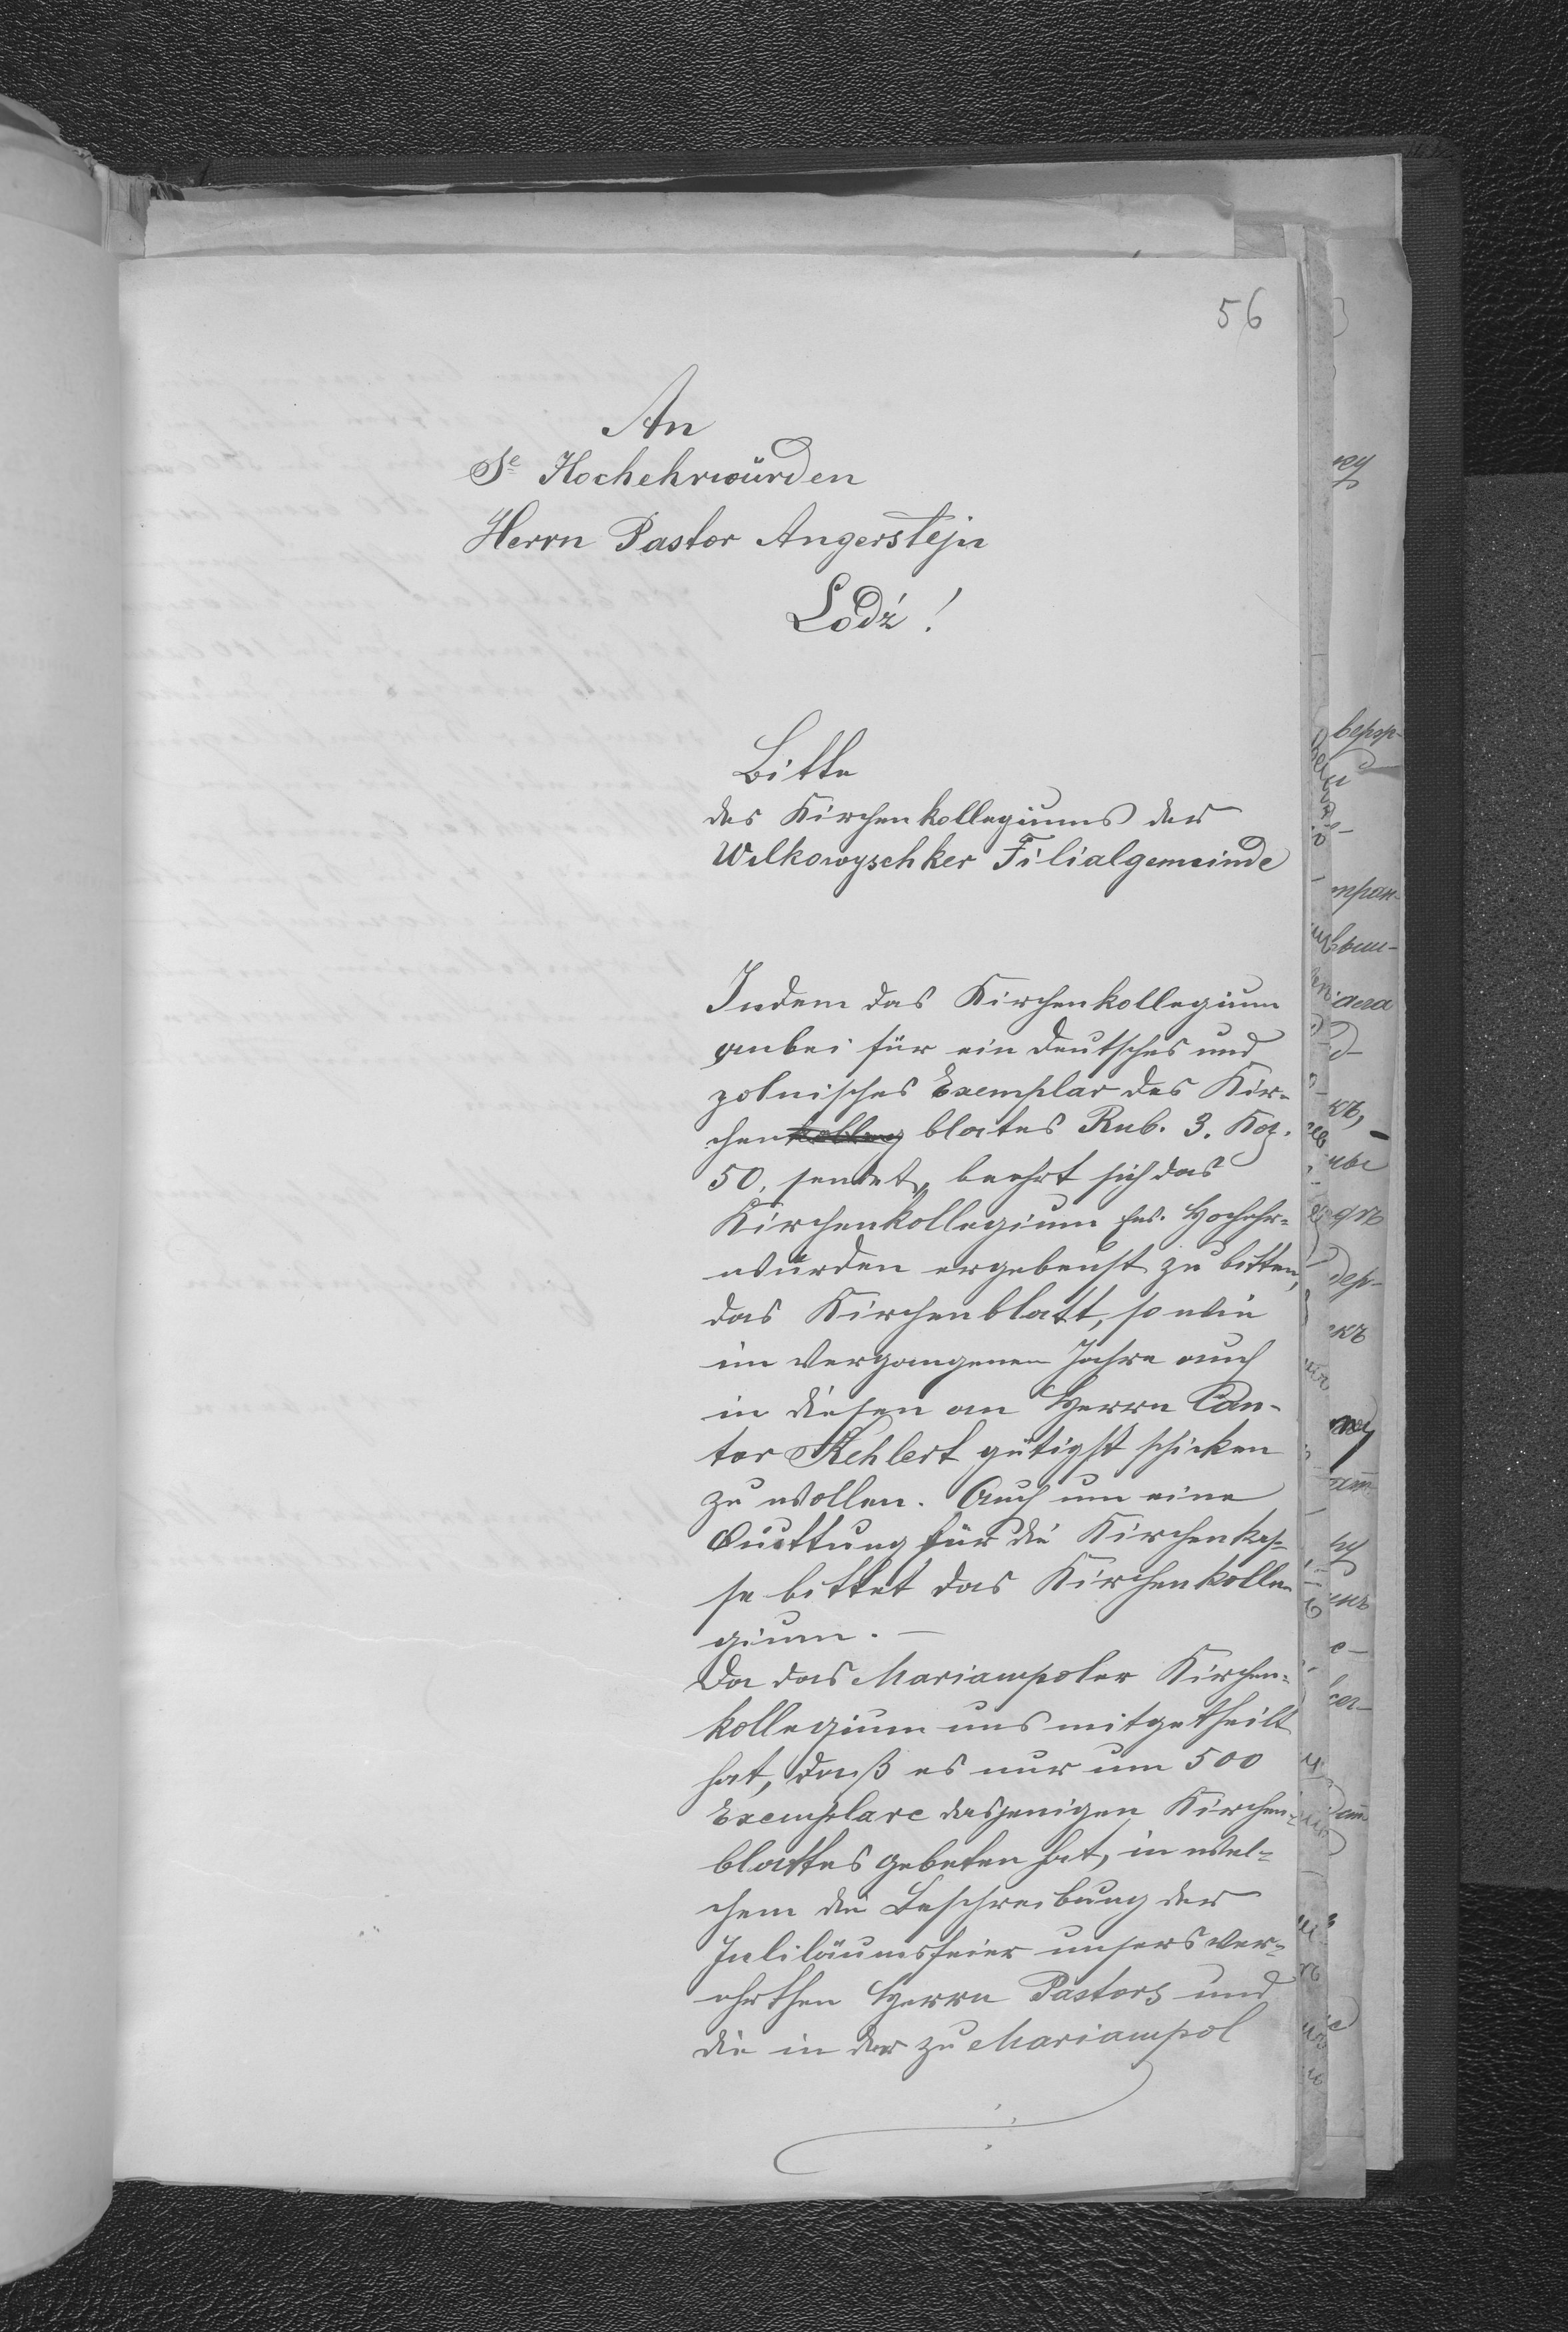 56
An
Se Hochehrwürden
Herrn Pastor Angerstejn
Lodź!
Bitte
des Kirchenkollegiums der
Wilkowyschker Filialgemeinde
Indem das Kirchenkollegium
anbei für ein deutsches und
polnisches Exemplar des Kir-
chen blates Rub. 3. Kop.
50. sendet, beehrt sich das
Kirchenkollegium Ew. Hochehr-
würden ergebenst zu bitten,
das Kirchenblatt, so wie
im vergangenen Jahre auch
in diesen an Herrn Can-
tor Kehlert gütigst schicken
zu wollen. Auch um eine
Quittung für die Kirchenkas-
se bittet das Kirchenkolle-
gium. —
Da das Mariampoler Kirchen-
kollegium uns mitgetheilt
hat, daß es nur um 500
Exemplare dasjenigen Kirchen-
blattes gebeten hat, in wel-
chem die Beschreibung der
Jubiläumsfeier unsers ver-
ehrthen Herrn Pastors und
die in der zu Mariampol